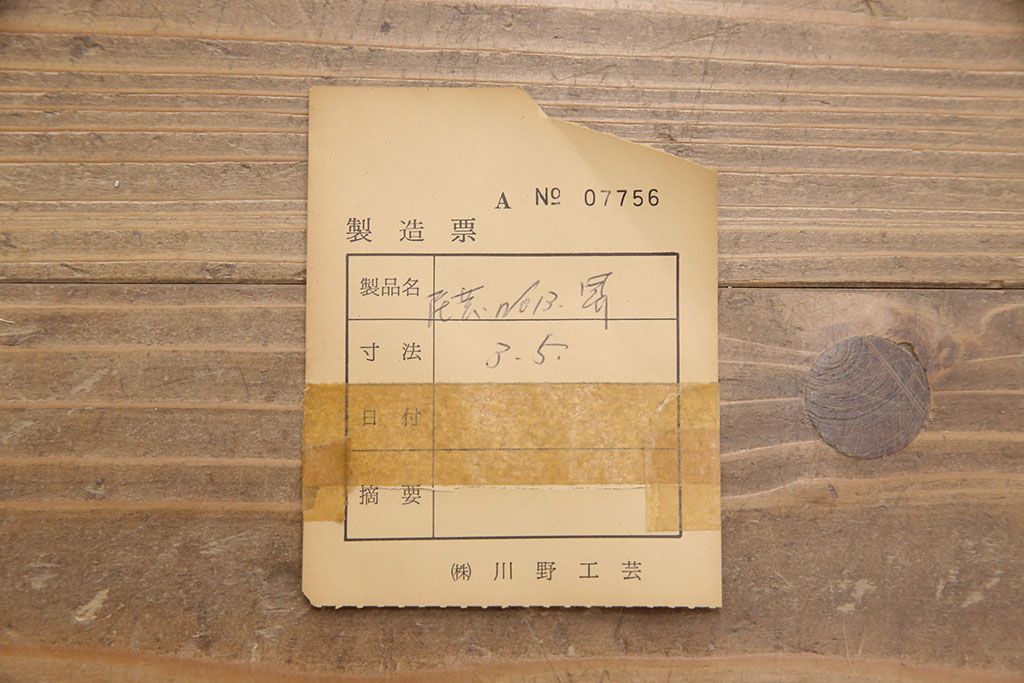 A № 07756
製造票
製品名 民芸. No13.
寸法 3-5.
日付
摘要
㈱ 川野工芸